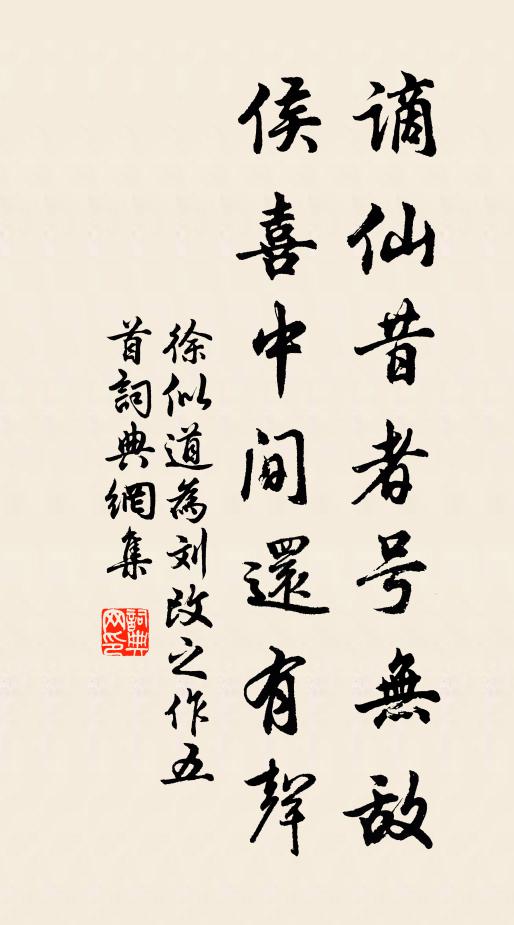 谪仙昔者号無敌
侯喜中间還有聲
徐似道為刘改之作五
首詞典網集
詞典網印